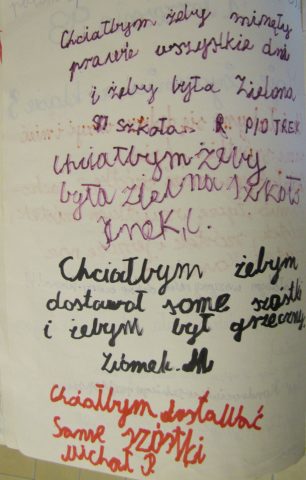 Chciałbym żeby minęły
prawie wszystkie dni
i żeby była Zielona
szkoła R. PIOTREK
Chciałbym żeby
była zielna szkoła
Jnek, C.
Chciałbym żebym
dostawał some szóstki
i żebym był grzeczny
Ziomek. M
Chciałbym dostawać
Same szóstki
Michał P.